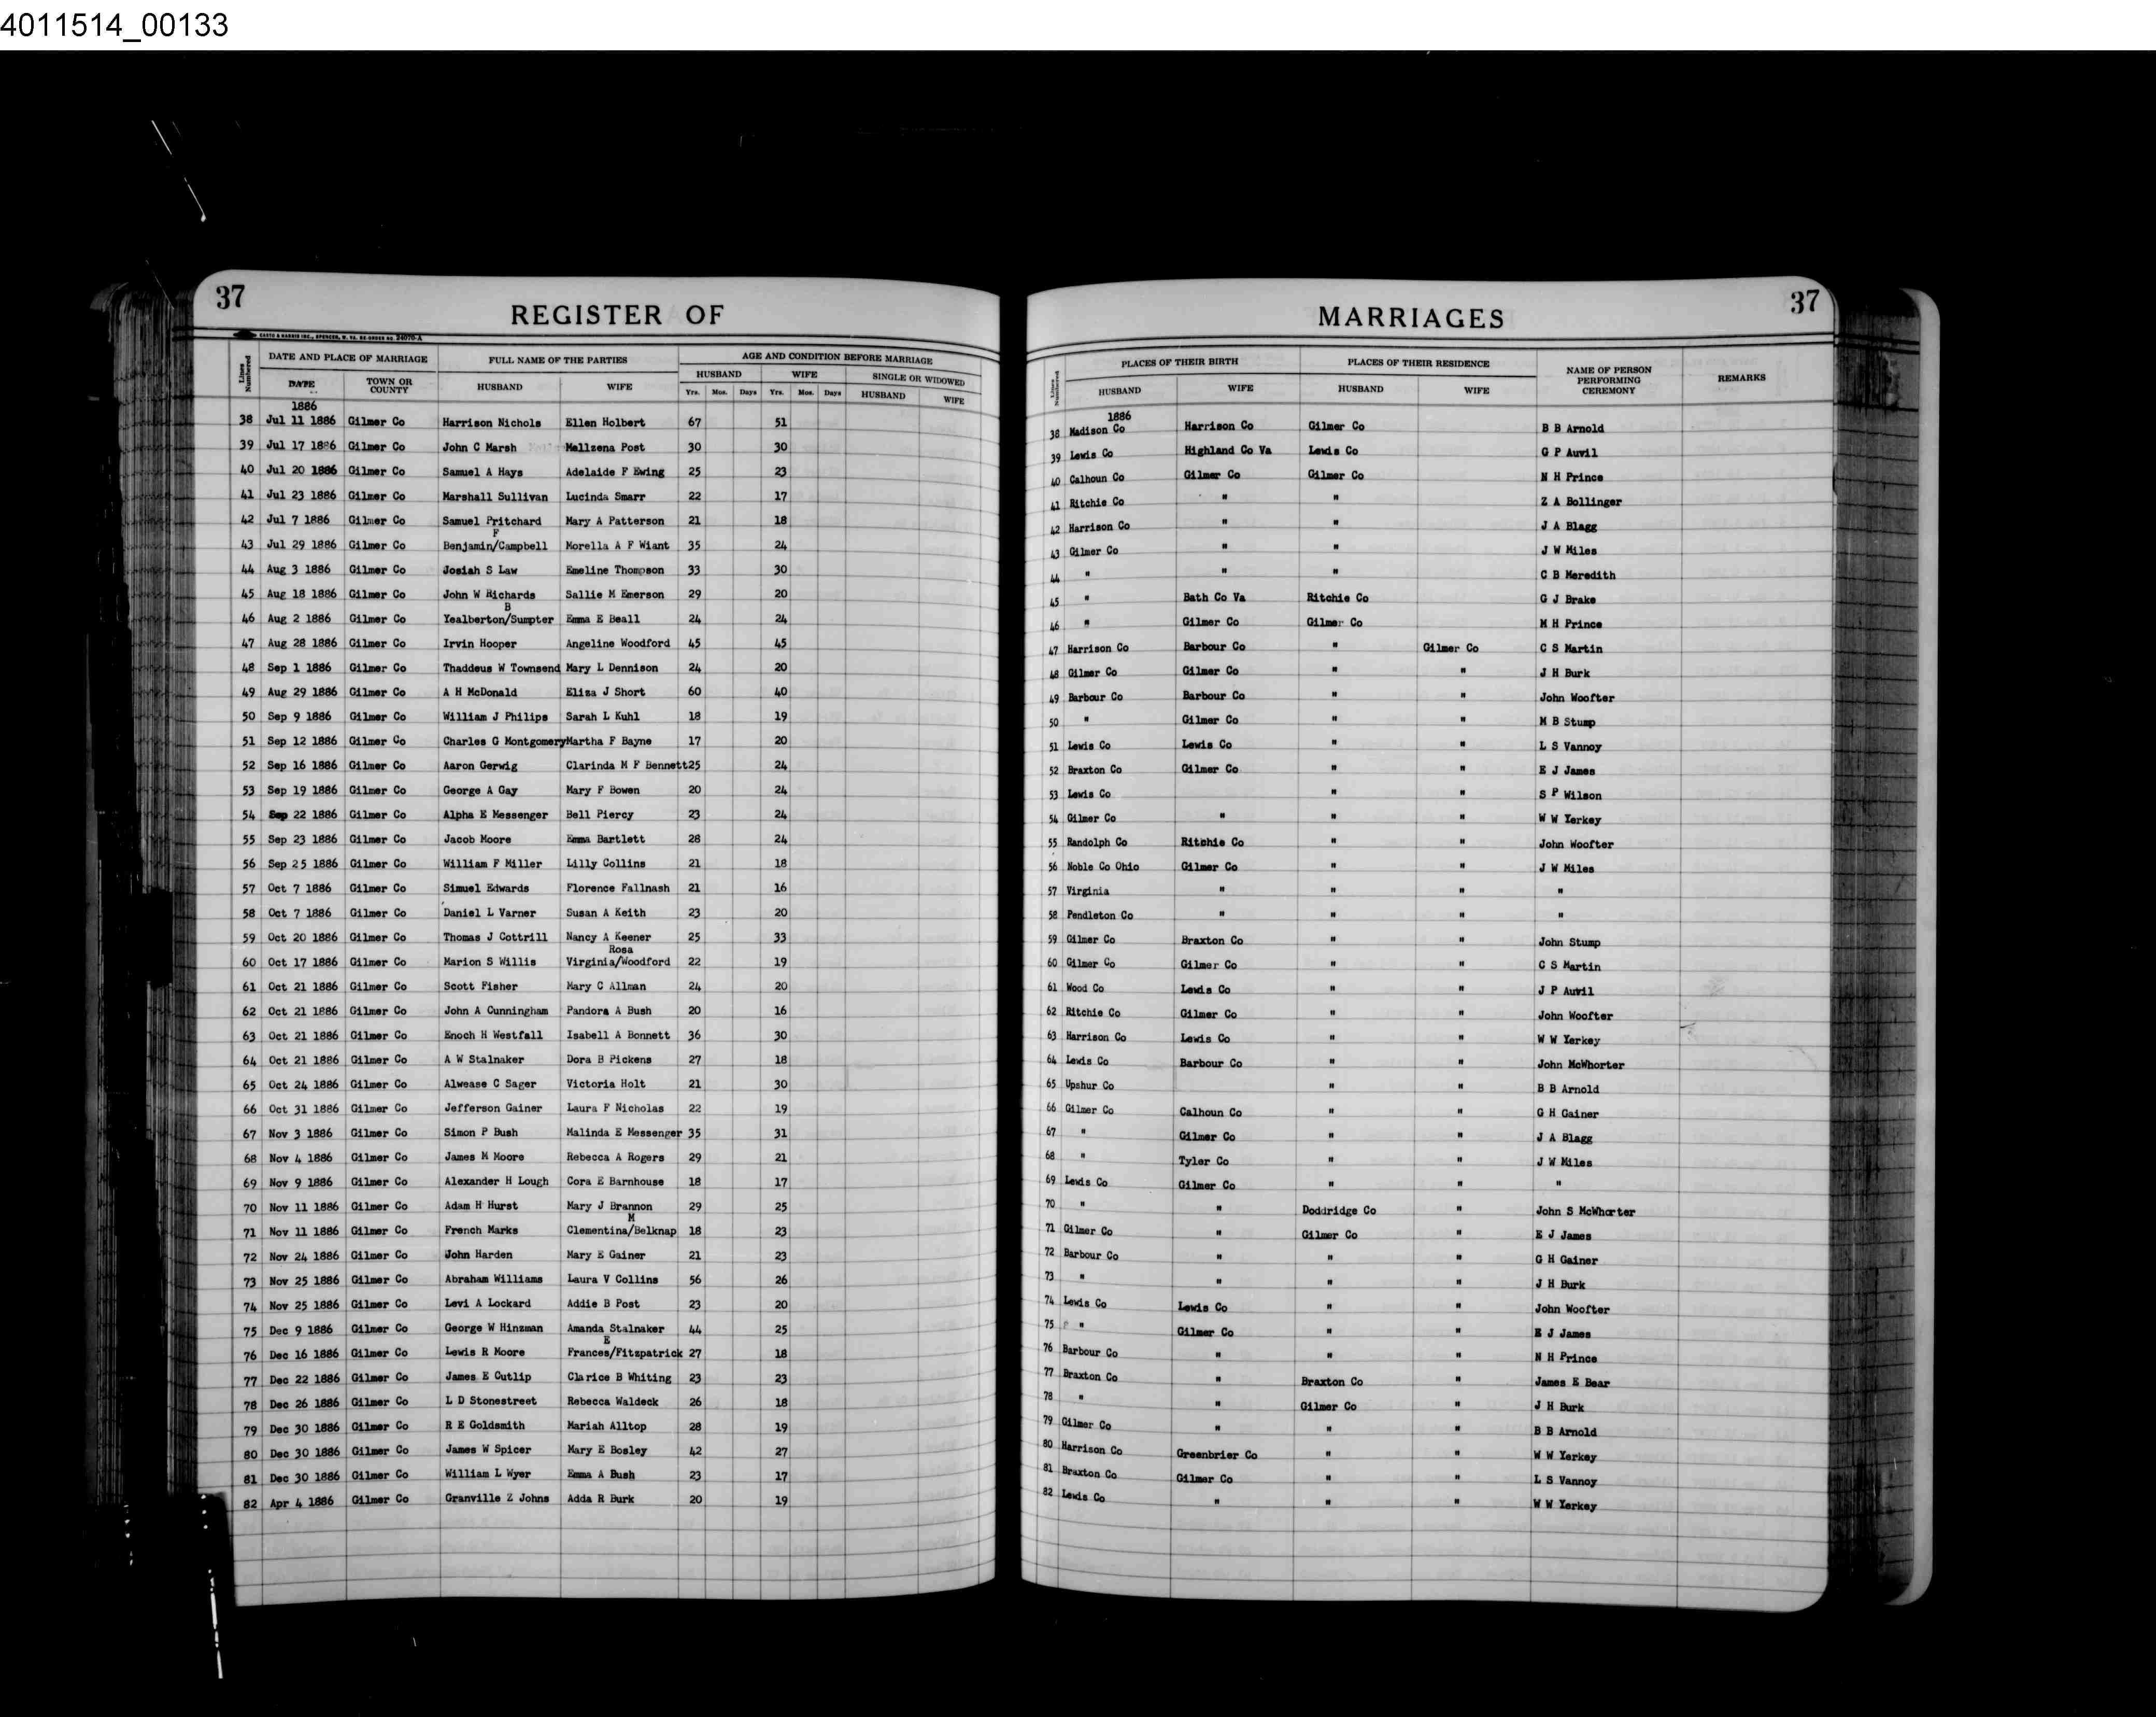 4011514_00133
37
REGISTER OF
MARRIAGES
37
CASTO & HARRIS INC., SPENCER, W. VA. RE-ORDER NO. 24070-A
Lines Numbered DATE AND PLACE OF MARRIAGE FULL NAME OF THE PARTIES AGE AND CONDITION BEFORE MARRIAGE
DATE TOWN OR COUNTY HUSBAND WIFE HUSBAND WIFE SINGLE OR WIDOWED
Yrs. Mos. Days Yrs. Mos. Days HUSBAND WIFE
1886
38 Jul 11 1886 Gilmer Co Harrison Nichols Ellen Holbert 67 51
39 Jul 17 1886 Gilmer Co John C Marsh Mellzena Post 30 30
40 Jul 20 1886 Gilmer Co Samuel A Hays Adelaide F Ewing 25 23
41 Jul 23 1886 Gilmer Co Marshall Sullivan Lucinda Smarr 22 17
42 Jul 7 1886 Gilmer Co Samuel Pritchard Mary A Patterson 21 18
F
43 Jul 29 1886 Gilmer Co Benjamin/Campbell Morella A F Wiant 35 24
44 Aug 3 1886 Gilmer Co Josiah S Law Emeline Thompson 33 30
45 Aug 18 1886 Gilmer Co John W Richards Sallie M Emerson 29 20
B
46 Aug 2 1886 Gilmer Co Yealberton/Sumpter Emma E Beall 24 24
47 Aug 28 1886 Gilmer Co Irvin Hooper Angeline Woodford 45 45
48 Sep 1 1886 Gilmer Co Thaddeus W Townsend Mary L Dennison 24 20
49 Aug 29 1886 Gilmer Co A H McDonald Eliza J Short 60 40
50 Sep 9 1886 Gilmer Co William J Philips Sarah L Kuhl 18 19
51 Sep 12 1886 Gilmer Co Charles G Montgomery Martha F Bayne 17 20
52 Sep 16 1886 Gilmer Co Aaron Gerwig Clarinda M F Bennett 25 24
53 Sep 19 1886 Gilmer Co George A Gay Mary F Bowen 20 24
54 Sep 22 1886 Gilmer Co Alpha E Messenger Bell Piercy 23 24
55 Sep 23 1886 Gilmer Co Jacob Moore Emma Bartlett 28 24
56 Sep 25 1886 Gilmer Co William F Miller Lilly Collins 21 18
57 Oct 7 1886 Gilmer Co Simuel Edwards Florence Fallnash 21 16
58 Oct 7 1886 Gilmer Co Daniel L Varner Susan A Keith 23 20
59 Oct 20 1886 Gilmer Co Thomas J Cottrill Nancy A Keener 25 33
Rosa
60 Oct 17 1886 Gilmer Co Marion S Willis Virginia/Woodford 22 19
61 Oct 21 1886 Gilmer Co Scott Fisher Mary C Allman 24 20
62 Oct 21 1886 Gilmer Co John A Cunningham Pandora A Bush 20 16
63 Oct 21 1886 Gilmer Co Enoch H Westfall Isabell A Bonnett 36 30
64 Oct 21 1886 Gilmer Co A W Stalnaker Dora B Pickens 27 18
65 Oct 24 1886 Gilmer Co Alwease C Sager Victoria Holt 21 30
66 Oct 31 1886 Gilmer Co Jefferson Gainer Laura F Nicholas 22 19
67 Nov 3 1886 Gilmer Co Simon P Bush Malinda E Messenger 35 31
68 Nov 4 1886 Gilmer Co James M Moore Rebecca A Rogers 29 21
69 Nov 9 1886 Gilmer Co Alexander H Lough Cora E Barnhouse 18 17
70 Nov 11 1886 Gilmer Co Adam H Hurst Mary J Brannon 29 25
M
71 Nov 11 1886 Gilmer Co French Marks Clementina/Belknap 18 23
72 Nov 24 1886 Gilmer Co John Harden Mary E Gainer 21 23
73 Nov 25 1886 Gilmer Co Abraham Williams Laura V Collins 56 26
74 Nov 25 1886 Gilmer Co Levi A Lockard Addie B Post 23 20
75 Dec 9 1886 Gilmer Co George W Hinzman Amanda Stalnaker 44 25
E
76 Dec 16 1886 Gilmer Co Lewis R Moore Frances/Fitzpatrick 27 18
77 Dec 22 1886 Gilmer Co James E Cutlip Clarice B Whiting 23 23
78 Dec 26 1886 Gilmer Co L D Stonestreet Rebecca Waldeck 26 18
79 Dec 30 1886 Gilmer Co R E Goldsmith Mariah Alltop 28 19
80 Dec 30 1886 Gilmer Co James W Spicer Mary E Bosley 42 27
81 Dec 30 1886 Gilmer Co William L Wyer Emma A Bush 23 17
82 Apr 4 1886 Gilmer Co Granville Z Johns Adda R Burk 20 19
Lines Numbered PLACES OF THEIR BIRTH PLACES OF THEIR RESIDENCE NAME OF PERSON PERFORMING CEREMONY REMARKS
HUSBAND WIFE HUSBAND WIFE
1886
38 Madison Co Harrison Co Gilmer Co B B Arnold
39 Lewis Co Highland Co Va Lewis Co G P Auvil
40 Calhoun Co Gilmer Co Gilmer Co N H Prince
41 Ritchie Co " " Z A Bollinger
42 Harrison Co " " J A Blagg
43 Gilmer Co " " J W Miles
44 " " " C B Meredith
45 " Bath Co Va Ritchie Co G J Brake
46 " Gilmer Co Gilmer Co M H Prince
47 Harrison Co Barbour Co " Gilmer Co C S Martin
48 Gilmer Co Gilmer Co " " J H Burk
49 Barbour Co Barbour Co " " John Woofter
50 " Gilmer Co " " M B Stump
51 Lewis Co Lewis Co " " L S Vannoy
52 Braxton Co Gilmer Co " " E J James
53 Lewis Co " " S P Wilson
54 Gilmer Co " " " W W Yerkey
55 Randolph Co Ritchie Co " " John Woofter
56 Noble Co Ohio Gilmer Co " " J W Miles
57 Virginia " " " "
58 Pendleton Co " " " "
59 Gilmer Co Braxton Co " " John Stump
60 Gilmer Co Gilmer Co " " C S Martin
61 Wood Co Lewis Co " " J P Auvil
62 Ritchie Co Gilmer Co " " John Woofter
63 Harrison Co Lewis Co " " W W Yerkey
64 Lewis Co Barbour Co " " John McWhorter
65 Upshur Co " " B B Arnold
66 Gilmer Co Calhoun Co " " G H Gainer
67 " Gilmer Co " " J A Blagg
68 " Tyler Co " " J W Miles
69 Lewis Co Gilmer Co " " "
70 " " Doddridge Co " John S McWhorter
71 Gilmer Co " Gilmer Co " E J James
72 Barbour Co " " " G H Gainer
73 " " " " J H Burk
74 Lewis Co Lewis Co " " John Woofter
75 " Gilmer Co " " E J James
76 Barbour Co " " " N H Prince
77 Braxton Co " Braxton Co " James E Bear
78 " " Gilmer Co " J H Burk
79 Gilmer Co " " " B B Arnold
80 Harrison Co Greenbrier Co " " W W Yerkey
81 Braxton Co Gilmer Co " " L S Vannoy
82 Lewis Co " " " W W Yerkey